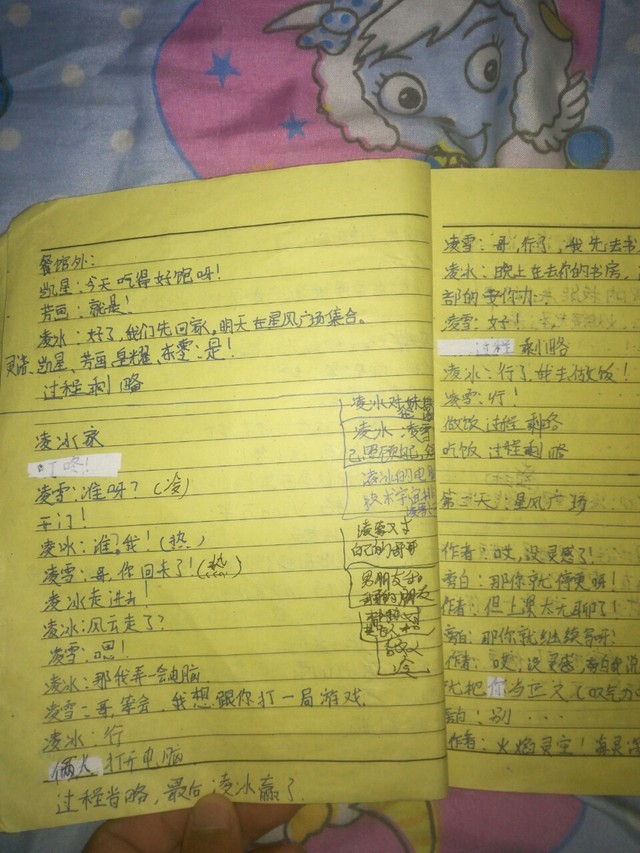 餐馆外:
凯星:今天吃得好饱呀!
芳画:就是!
凌冰:好了,我们先回家,明天在星风广场集合。
凯星、芳画 星耀、东雪:是!
过程剩略
凌冰家
叮咚!
凌雪:谁呀?(冷)
开门!
凌冰:谁?我!(热)
凌雪:哥,你回来了!(热)
凌冰走进去!
凌冰:风云走了?
凌雪:嗯!
凌冰:那我弄一会电脑
凌雪:哥,等会,我想跟你打一局游戏
凌冰:行
俩人打开电脑
过程省略,最后凌冰赢了
凌冰对妹妹
凌冰 凌雪
凌冰的电
凌雪只才
自己的哥哥
男朋友和
哥哥的朋友
敌人
冷
凌雪:哥,行了,我先去书
凌冰:晚上在去你的书房,
部的要你办
凌雪:好!
过程剩略
凌冰:行了,我去做饭!
凌雪:行!
做饭过程剩略
吃饭过程剩略
第三天:星风广场
作者:哎,没灵感了!
旁白:那你就停更呗!
作者:但上澳太无聊了!
旁白:那你就继续写呀!
作者:哎,没灵感,旁白
化把你与正义(叹气
旁白:别...
作者:火焰灵宝!